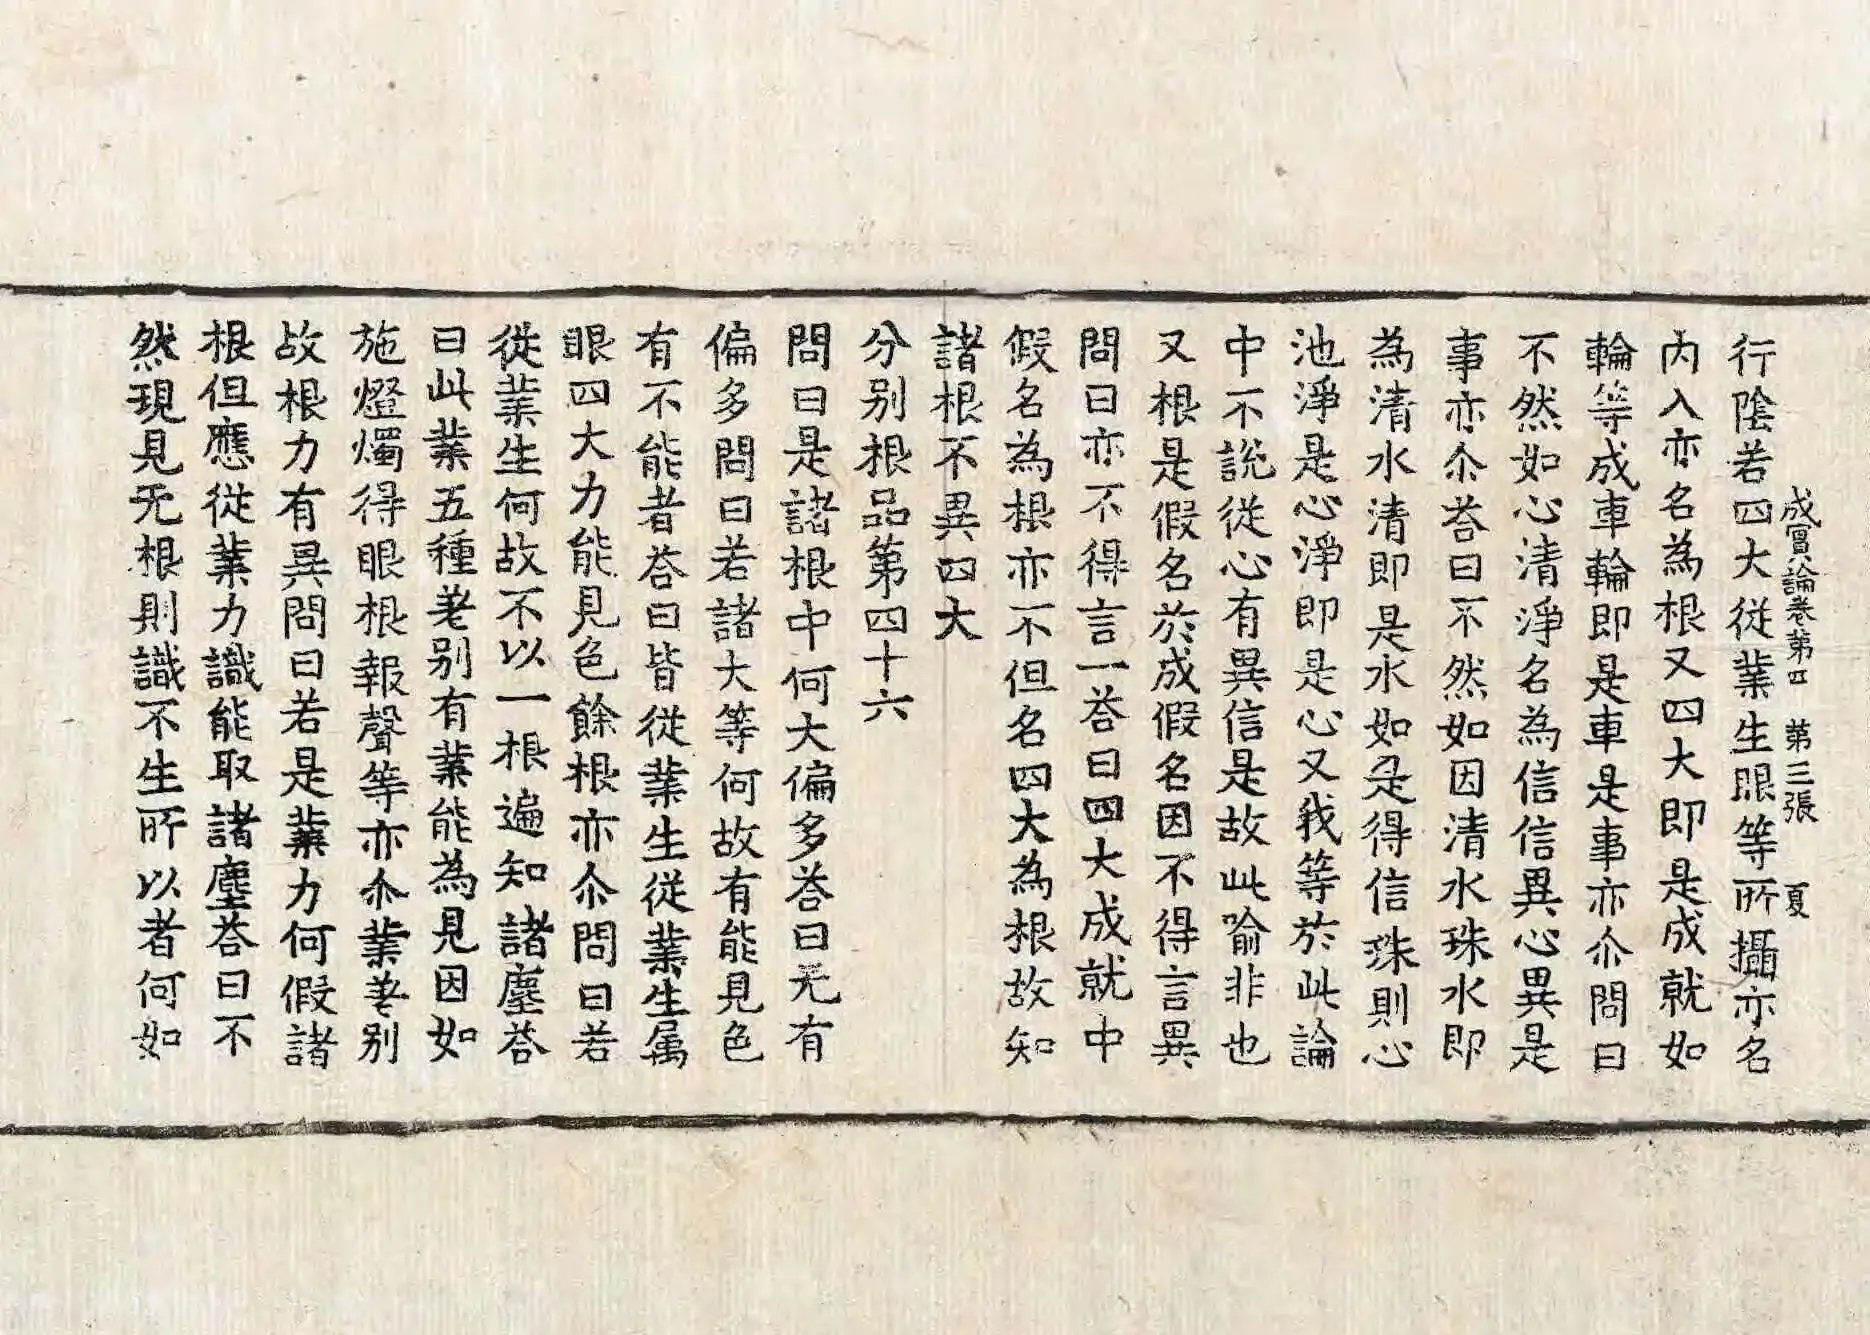 成實論卷第四 第三張 夏
行陰若四大從業生眼等所攝亦名
內入亦名為根又四大即是成就如
輪等成車輪即是車是事亦尒問曰
不然如心清淨名為信信異心異是
事亦尒荅曰不然如因清水珠水即
為清水清即是水如是得信珠則心
池淨是心淨即是心又我等於此論
中不說從心有異信是故此喻非也
又根是假名於成假名因不得言異
問曰亦不得言一荅曰四大成就中
假名為根亦不但名四大為根故知
諸根不異四大
分别根品第四十六
問曰是諸根中何大偏多荅曰无有
偏多問曰若諸大等何故有能見色
有不能者荅曰皆從業生從業生属
眼四大力能見色餘根亦尒問曰若
從業生何故不以一根遍知諸塵荅
曰此業五種差别有業能為見因如
施燈燭得眼根報聲等亦尒業差别
故根力有異問曰若是業力何假諸
根但應從業力識能取諸塵荅曰不
然現見无根則識不生所以者何如